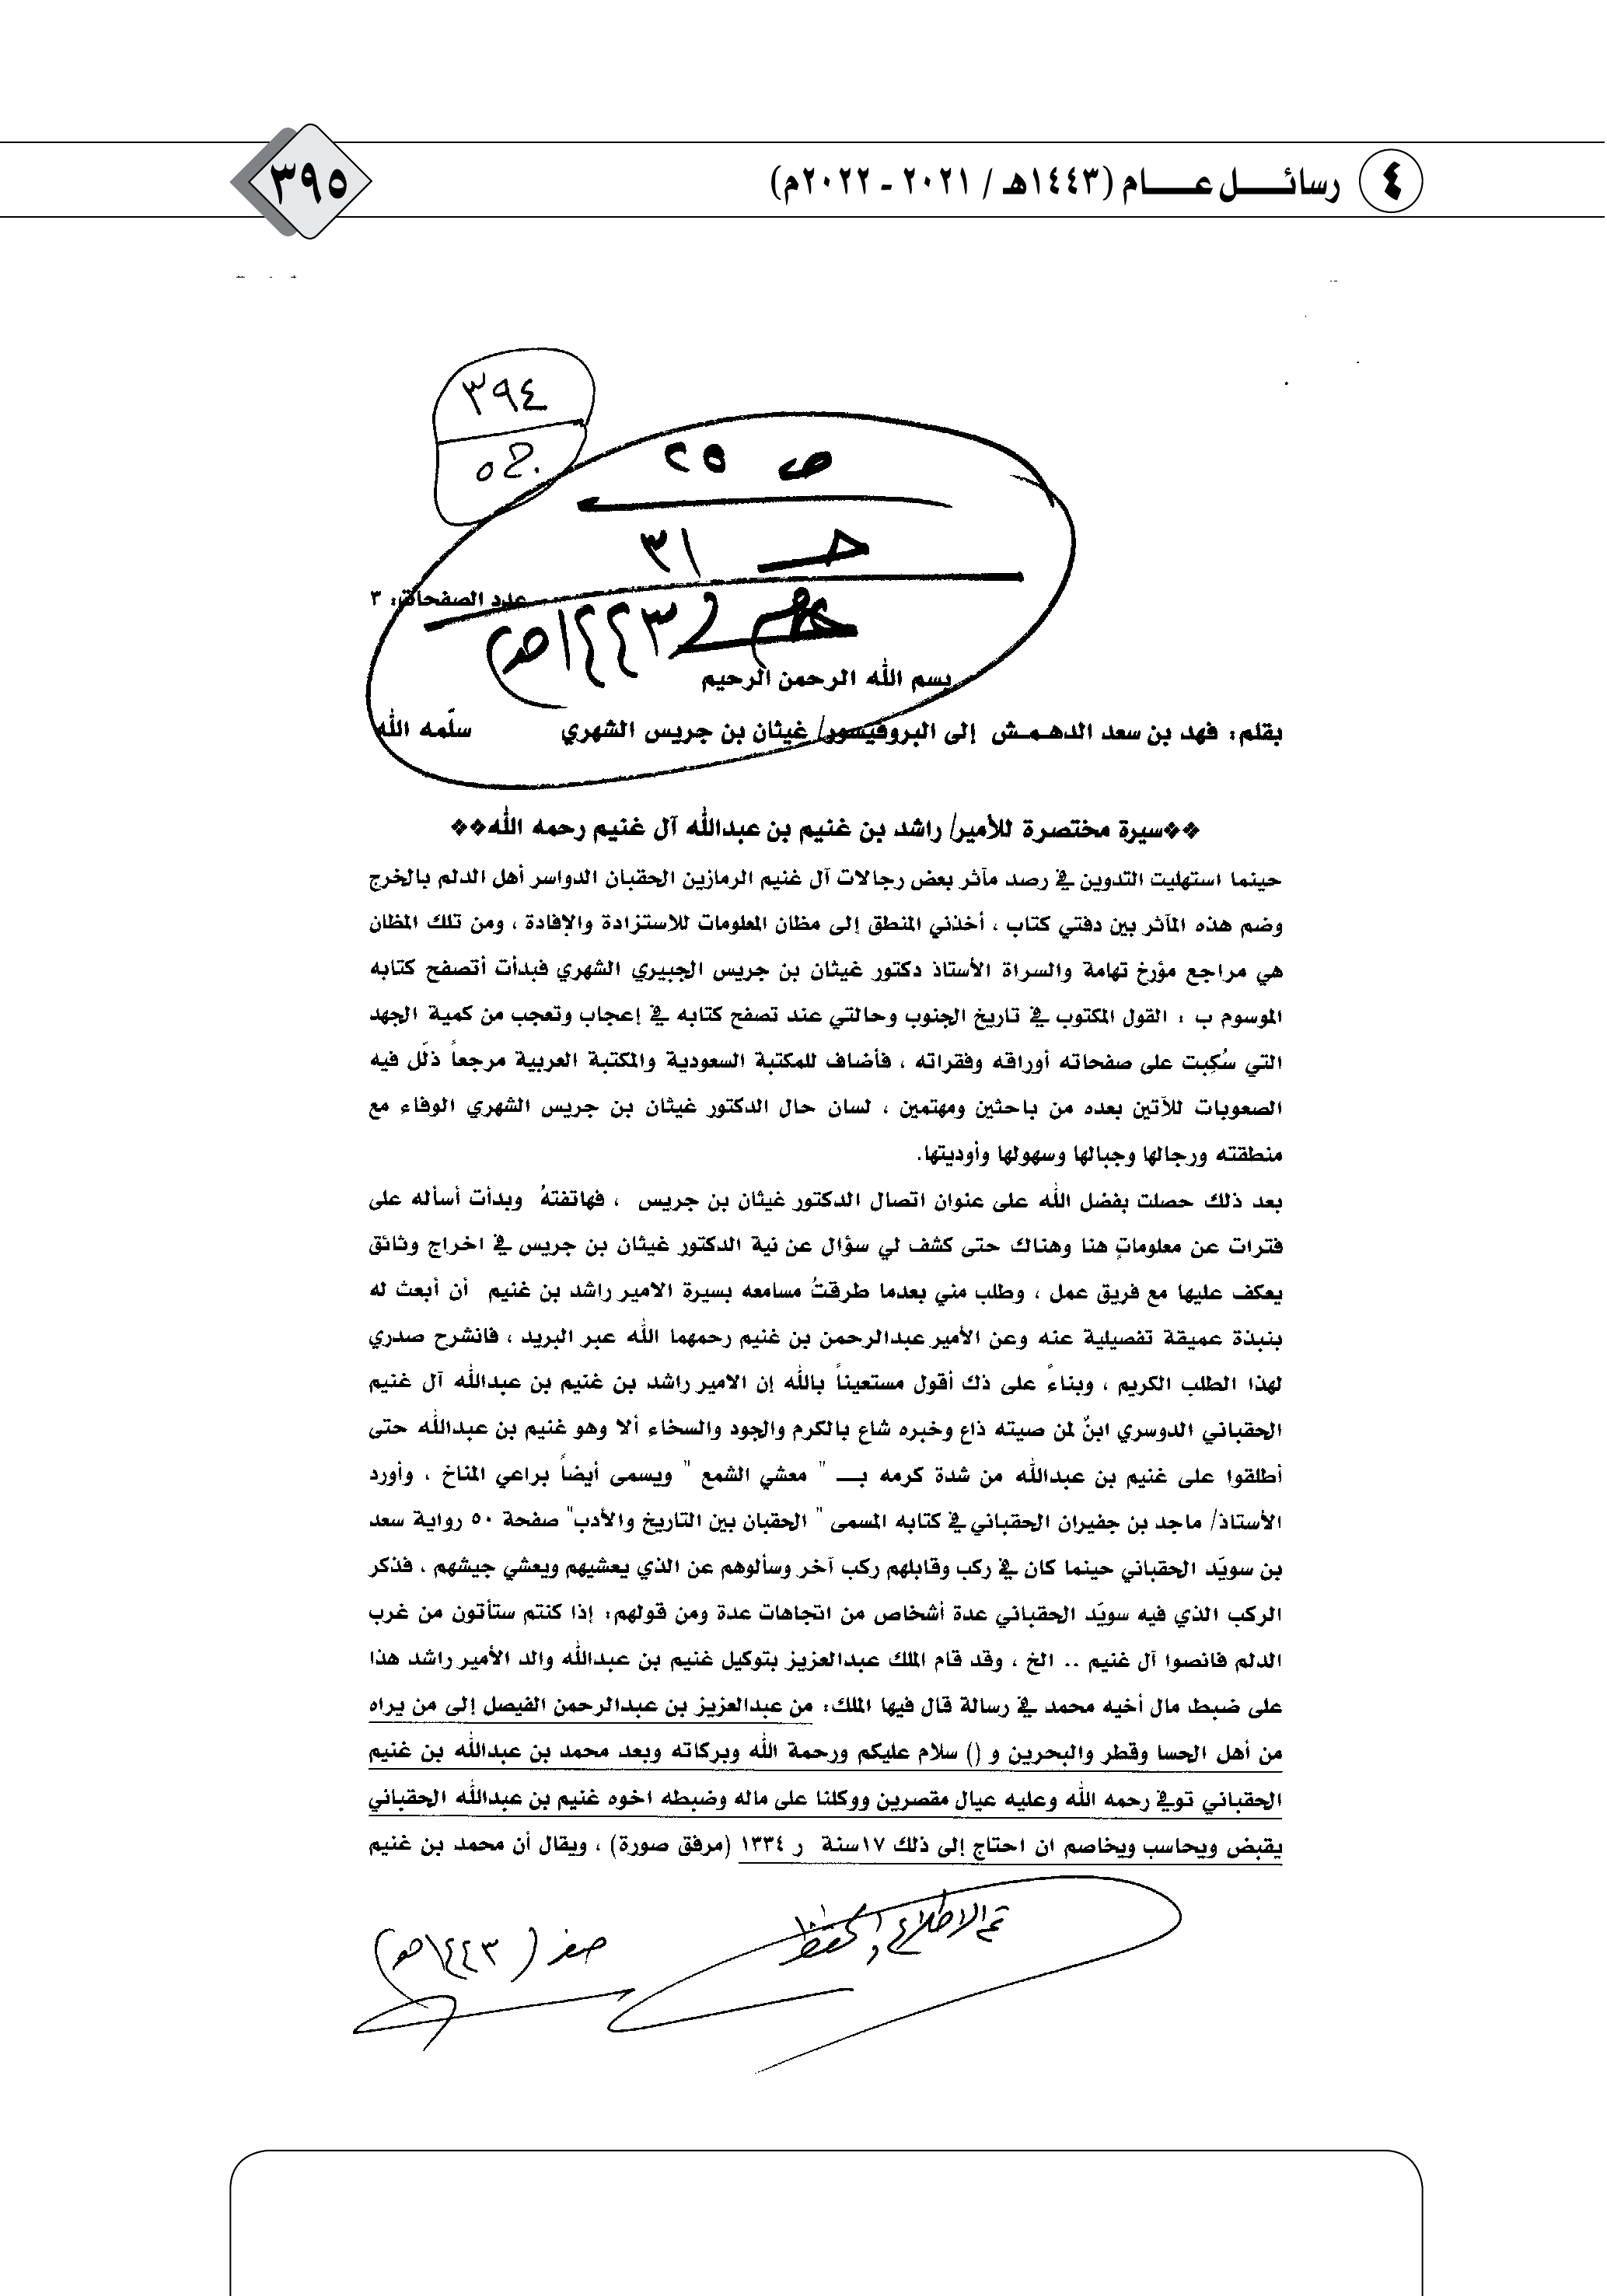 ٤ رسائــــل عــــام (١٤٤٣هـ / ٢٠٢١ - ٢٠٢٢م)
٣٩٥
٣٩٤
ص ٢٥
٥٢٠
حـ ٣١
عدد الصفحات: ٣
١٤٤٣هـ)
بسم الله الرحمن الرحيم
بقلم: فهد بن سعد الدهـمـش إلى البروفيسور/ غيثان بن جريس الشهري سلّمه الله
❖❖سيرة مختصرة للأمير/ راشد بن غنيم بن عبدالله آل غنيم رحمه الله❖❖
حينما استهليت التدوين في رصد مآثر بعض رجالات آل غنيم الرمازين الحقبان الدواسر أهل الدلم بالخرج
وضم هذه المآثر بين دفتي كتاب ، أخذني المنطق إلى مظان المعلومات للاستزادة والإفادة ، ومن تلك المظان
هي مراجع مؤرخ تهامة والسراة الأستاذ دكتور غيثان بن جريس الجبيري الشهري فبدأت أتصفح كتابه
الموسوم ب : القول المكتوب في تاريخ الجنوب وحالتي عند تصفح كتابه في إعجاب وتعجب من كمية الجهد
التي سُكِبت على صفحاته أوراقه وفقراته ، فأضاف للمكتبة السعودية والمكتبة العربية مرجعاً ذلّل فيه
الصعوبات للآتين بعده من باحثين ومهتمين ، لسان حال الدكتور غيثان بن جريس الشهري الوفاء مع
منطقته ورجالها وجبالها وسهولها وأوديتها.
بعد ذلك حصلت بفضل الله على عنوان اتصال الدكتور غيثان بن جريس ، فهاتفتهُ وبدأت أسأله على
فترات عن معلوماتٍ هنا وهناك حتى كشف لي سؤال عن نية الدكتور غيثان بن جريس في اخراج وثائق
يعكف عليها مع فريق عمل ، وطلب مني بعدما طرقتُ مسامعه بسيرة الامير راشد بن غنيم أن أبعث له
بنبذة عميقة تفصيلية عنه وعن الأمير عبدالرحمن بن غنيم رحمهما الله عبر البريد ، فانشرح صدري
لهذا الطلب الكريم ، وبناءً على ذك أقول مستعيناً بالله إن الامير راشد بن غنيم بن عبدالله آل غنيم
الحقباني الدوسري ابنٌ لمن صيته ذاع وخبره شاع بالكرم والجود والسخاء ألا وهو غنيم بن عبدالله حتى
أطلقوا على غنيم بن عبدالله من شدة كرمه بـــ " معشي الشمع " ويسمى أيضاً براعي المناخ ، وأورد
الأستاذ/ ماجد بن جفيران الحقباني في كتابه المسمى " الحقبان بين التاريخ والأدب" صفحة ٥٠ رواية سعد
بن سويّد الحقباني حينما كان في ركب وقابلهم ركب آخر وسألوهم عن الذي يعشيهم ويعشي جيشهم ، فذكر
الركب الذي فيه سويّد الحقباني عدة أشخاص من اتجاهات عدة ومن قولهم: إذا كنتم ستأتون من غرب
الدلم فانصوا آل غنيم .. الخ ، وقد قام الملك عبدالعزيز بتوكيل غنيم بن عبدالله والد الأمير راشد هذا
على ضبط مال أخيه محمد في رسالة قال فيها الملك: من عبدالعزيز بن عبدالرحمن الفيصل إلى من يراه
من أهل الحسا وقطر والبحرين و () سلام عليكم ورحمة الله وبركاته وبعد محمد بن عبدالله بن غنيم
الحقباني توفي رحمه الله وعليه عيال مقصرين ووكلنا على ماله وضبطه اخوه غنيم بن عبدالله الحقباني
يقبض ويحاسب ويخاصم ان احتاج إلى ذلك ١٧سنة ر ١٣٣٤ (مرفق صورة) ، ويقال أن محمد بن غنيم
تم الاطلاع والحفظ
صفر (١٤٤٣هـ)